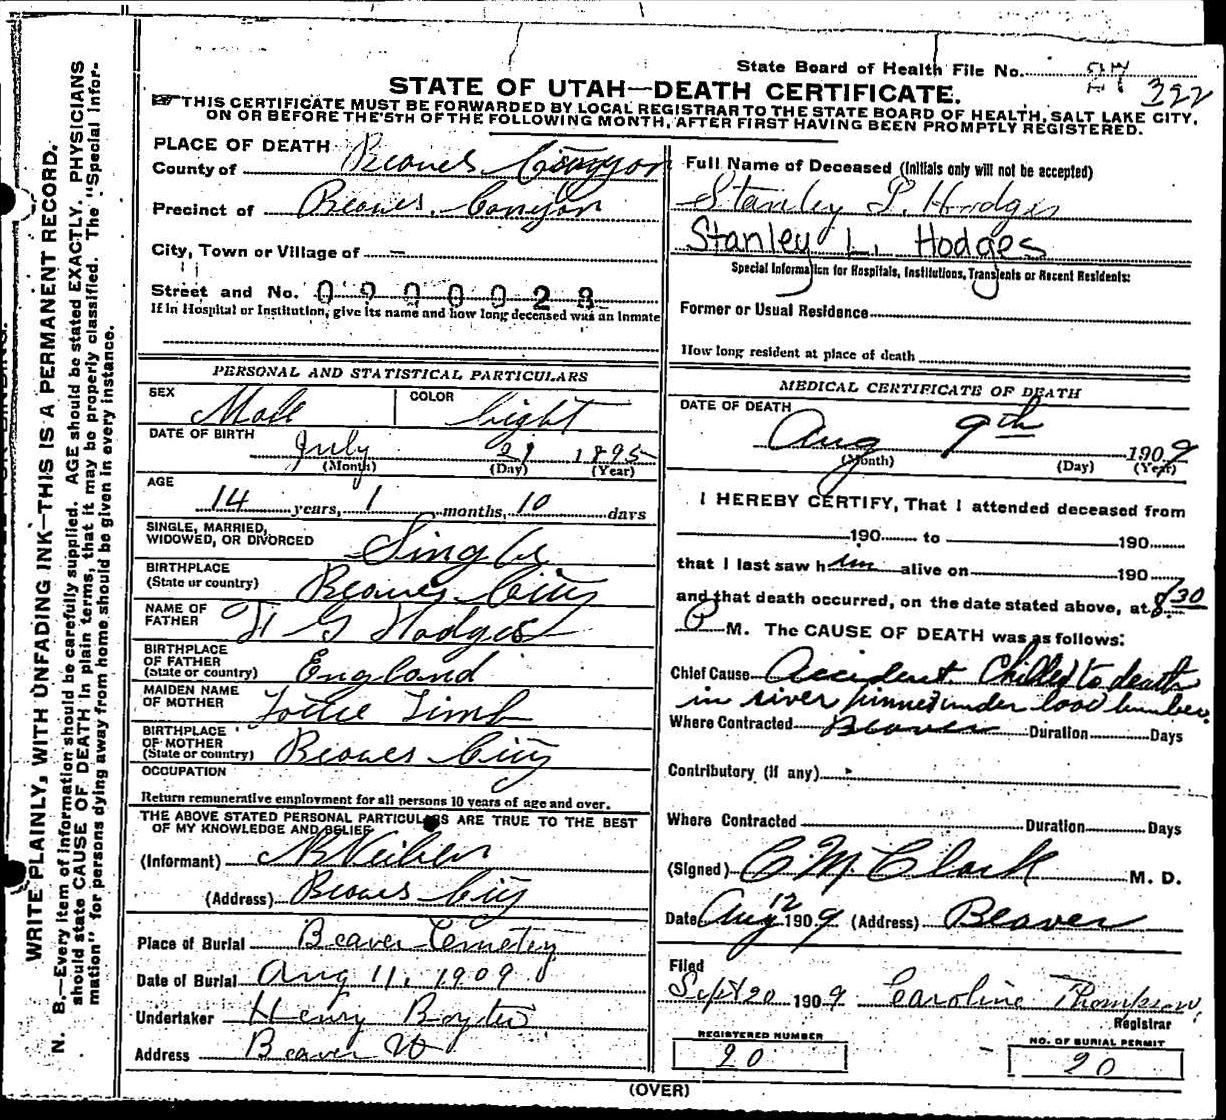 State Board of Health File No. 27 322
STATE OF UTAH—DEATH CERTIFICATE.
THIS CERTIFICATE MUST BE FORWARDED BY LOCAL REGISTRAR TO THE STATE BOARD OF HEALTH, SALT LAKE CITY,
ON OR BEFORE THE 5TH OF THE FOLLOWING MONTH, AFTER FIRST HAVING BEEN PROMPTLY REGISTERED.
WRITE PLAINLY, WITH UNFADING INK—THIS IS A PERMANENT RECORD.
N. B.—Every item of information should be carefully supplied. AGE should be stated EXACTLY. PHYSICIANS
should state CAUSE OF DEATH in plain terms, that it may be properly classified. The "Special Infor-
mation" for persons dying away from home should be given in every instance.
PLACE OF DEATH
County of Beaver Canyon
Precinct of Beaver Canyon
City, Town or Village of —
Street and No. 0900028
If in Hospital or Institution, give its name and how long deceased was an inmate
PERSONAL AND STATISTICAL PARTICULARS
SEX Male COLOR Light
DATE OF BIRTH July 29 1895
(Month) (Day) (Year)
AGE
14 years, 1 months, 10 days
SINGLE, MARRIED,
WIDOWED, OR DIVORCED Single
BIRTHPLACE
(State or country) Beaver City
NAME OF
FATHER W G Hodges
BIRTHPLACE
OF FATHER
(State or country) England
MAIDEN NAME
OF MOTHER Limb
BIRTHPLACE
OF MOTHER
(State or country) Beaver City
OCCUPATION
Return remunerative employment for all persons 10 years of age and over.
THE ABOVE STATED PERSONAL PARTICULARS ARE TRUE TO THE BEST
OF MY KNOWLEDGE AND BELIEF
(Informant)
(Address) Beaver City
Place of Burial Beaver Cemetery
Date of Burial Aug 11, 1909
Undertaker Henry Boyter
Address Beaver Ut
Full Name of Deceased (Initials only will not be accepted)
Stanley L. Hodges
Stanley L. Hodges
Special Information for Hospitals, Institutions, Transients or Recent Residents:
Former or Usual Residence
How long resident at place of death
MEDICAL CERTIFICATE OF DEATH
DATE OF DEATH
Aug 9th 1909
(Month) (Day) (Year)
I HEREBY CERTIFY, That I attended deceased from
190 to 190
that I last saw him alive on 190
and that death occurred, on the date stated above, at 8 30
P M. The CAUSE OF DEATH was as follows:
Chief Cause Accident. Chilled to death
in river pinned under load lumber.
Where Contracted Beaver Duration Days
Contributory (if any)
Where Contracted Duration Days
(Signed) C. M. Clark M. D.
Date Aug 12 1909 (Address) Beaver
Filed
Sept 20 1909 Caroline Thompson,
Registrar
REGISTERED NUMBER
20
NO. OF BURIAL PERMIT
20
(OVER)